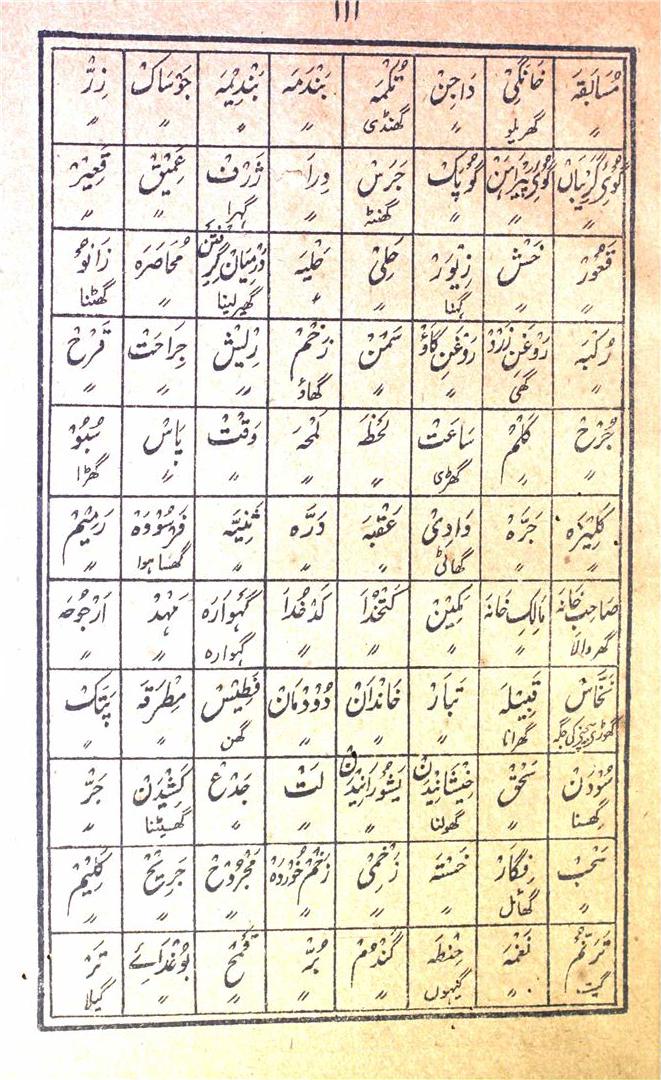 111
مُسَابَقَہ خَانَگِی دَاجِن تُکْمَہ بَنْدَمَہ بَنْدِیْمَہ جَوْسَاک زِرّ
〃 گھریلو 〃 گھنڈی 〃 〃 〃 〃
گُوئِ گَرِیْبَاں گُوئِ پِیْرَاہَن گُوپَاک جَرَسْ دِرَا ژَرْف عَمِیْق قَعِیْر
〃 〃 〃 گھنٹہ 〃 گہرا 〃 〃
قَعُوْر خَشْ زِیْوَر حَلِیْ حِلْیَہ دَرْمِیَان گِرِفْتَن مُحَاصَرَہ زَانُوْ
〃 〃 گہنا 〃 〃 گھیرلینا 〃 گھٹنا
رُکْبَہ رَوْغَنِ زَرْد رَوْغَنِ گَاؤ سَمَن زَخْم رِیْش جِرَاحَت قَرْح
〃 گھی 〃 〃 گھاؤ 〃 〃 〃
جُرْح کَلْم سَاعَت لَحْظَہ لَمْحَہ وَقْت پَاسْ سُبُوْ
〃 〃 گھڑی 〃 〃 〃 〃 گھڑا
کَلِیْزَہ جَرَّہ وَادِیْ عَقَبَہ دَرَّہ ثَنِیَّہ فَرْسُوْدَہ رَمِیْم
〃 〃 گھاٹی 〃 〃 〃 گھسا ہوا 〃
صَاحِبِ خَانَہ مَالِکِ خَانَہ مَکِیْن کَتْخُدَا کَدْخُدَا گَہْوَارَہ مَہْد اُرْجُوْحَہ
گھر والا 〃 〃 〃 〃 گہوارہ 〃 〃
نَخَّاسْ قَبِیْلَہ تَبَارْ خَانْدَان دُوْدْمَان فَطِیْس مِطْرَقَہ پَتَک
گھوڑی بیچنے کی جگہ گھرانا 〃 〃 〃 گھن 〃 〃
سُوْدَن سَحْق خِیْشَانِیْدَن یَشُوْرَانِیْدَن لَتْ جَدْع کَشِیْدَن جَرّ
گھسنا 〃 گھولنا 〃 〃 〃 گھسیٹنا 〃
سَحْب فِگَار خَسْتَہ زَخْمِیْ زَخْم خُوْرْدَہ مَجْرُوْح جَرِیْح کَلِیْم
〃 گھائل 〃 〃 〃 〃 〃 〃
تَرَنُّم نَغْمَہ حِنْطَہ گَنْدُم بُرّ قَمْح بُوْغْدَائے تَر
گیت 〃 گیہوں 〃 〃 〃 〃 گیلا